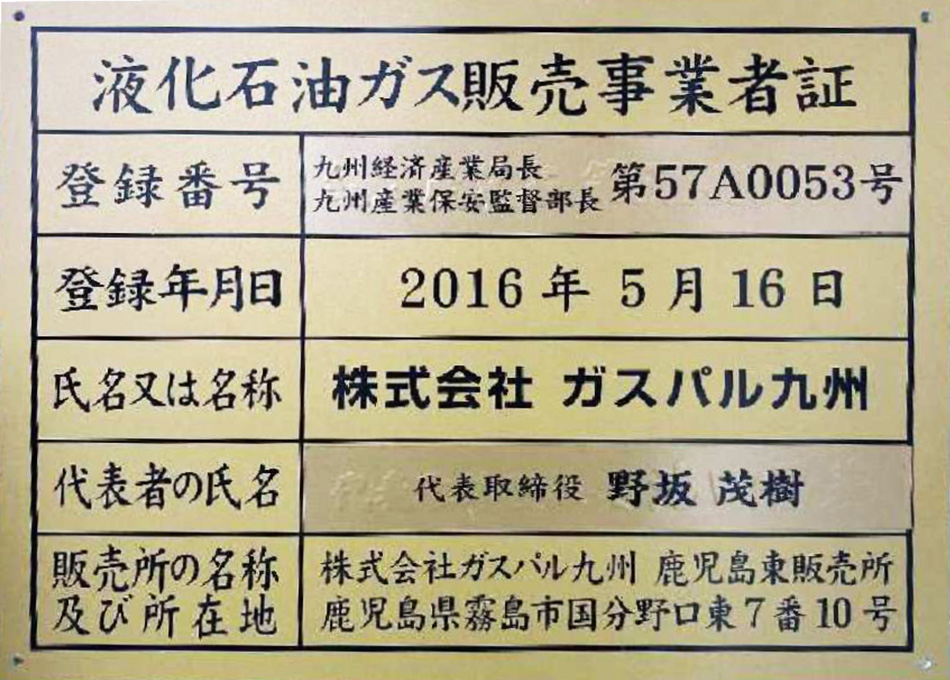 液化石油ガス販売事業者証
登録番号
九州経済産業局長
九州産業保安監督部長
第57A0053号
登録年月日
2016年 5月16日
氏名又は名称
株式会社 ガスパル九州
代表者の氏名
代表取締役 野坂 茂樹
販売所の名称
及び所在地
株式会社ガスパル九州 鹿児島東販売所
鹿児島県霧島市国分野口東7番10号